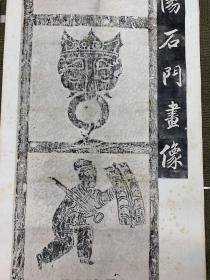 陽石門畫像